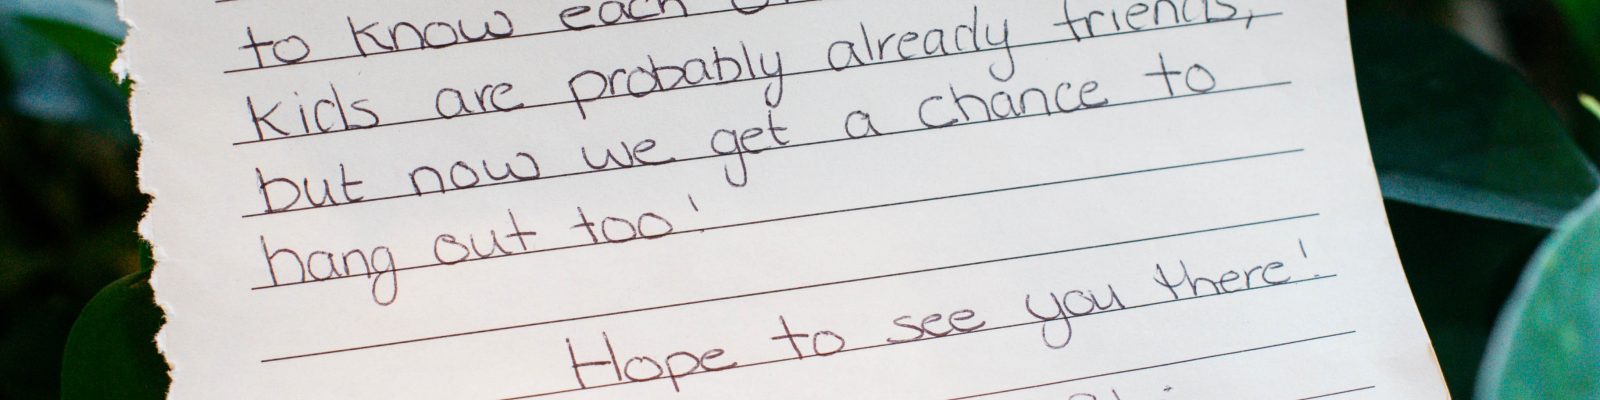 to know each
kids are probably already friends,
but now we get a chance to
hang out too!
Hope to see you there!